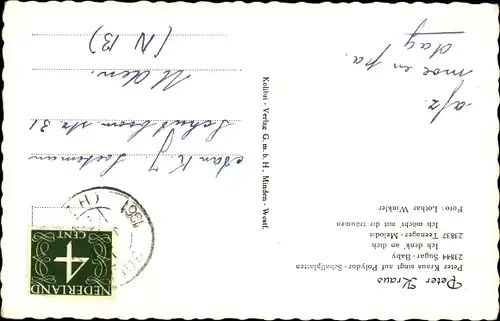 Peter Kraus
Peter Kraus singt auf Polydor-Schallplatten
23844 Sugar-Baby
Ich denk an dich
23837 Teenager-Melodie
Ich möcht' mit dir träumen
Foto: Lothar Winkler
Kolibri-Verlag G.m.b.H, Minden-Westf.
afz
moe en pa.
dag
aan K. J.
str 31
Uden.
(N B)
1961
4
CENT
NEDERLAND